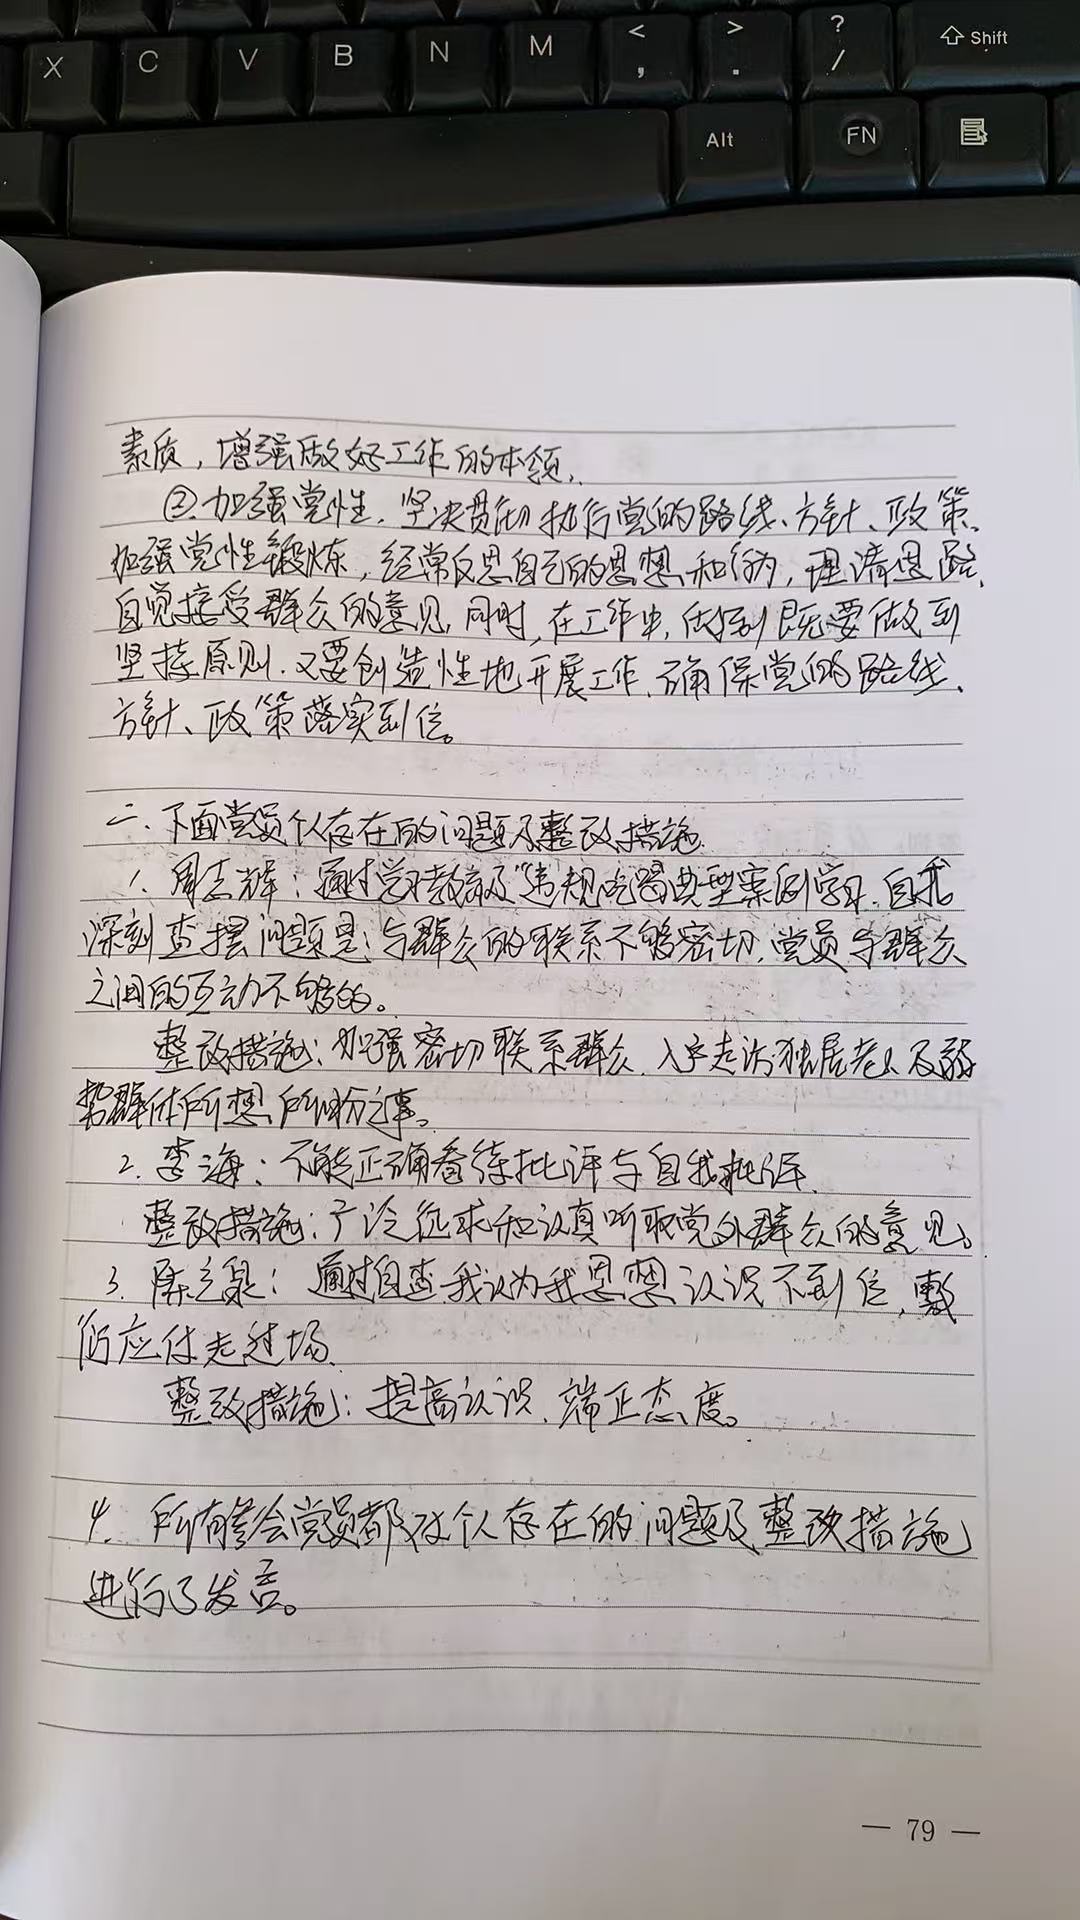 X C V B N M < , > . ? / Shift
Alt FN
素质，增强做好工作的本领。
②加强党性，坚决贯彻执行党的路线、方针、政策，
加强党性锻炼，经常反思自己的思想和行为，理清思路，
自觉接受群众的意见，同时，在工作中，做到既要做到
坚持原则，又要创造性地开展工作，确保党的路线、
方针、政策落实到位。
二、下面党员个人存在的问题及整改措施
1、周志辉：通过学习教育及“违规吃喝典型案例学习，自我
深刻查摆问题是：与群众的联系不够密切，党员与群众
之间的互动不够的。
整改措施：加强密切联系群众，入户走访独居老人及弱
势群体所想、所盼之事。
2、李海：不能正确看待批评与自我批评、
整改措施：广泛征求和认真听取党外群众的意见。
3、陈之泉：通过自查，我认为我思想认识不到位，敷
衍应付走过场、
整改措施：提高认识、端正态度。
4、所有参会党员都对个人存在的问题及整改措施
进行了发言。
— 79 —